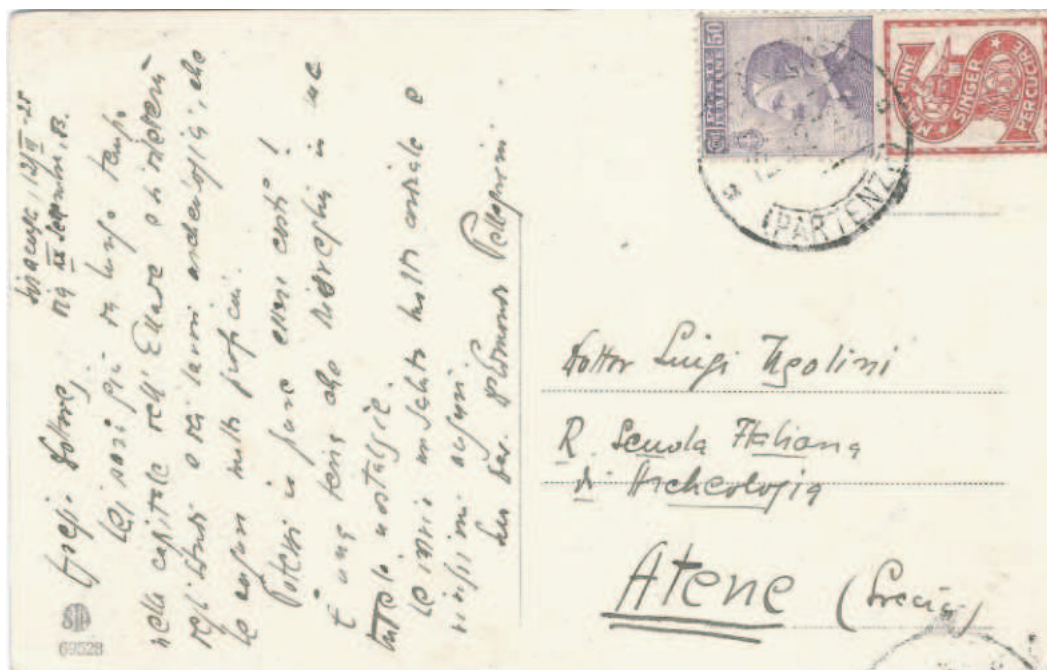 Siracusa, 12/III-25
Via XX Settembre, 13.
Egregi. Dottore,
Lei sarà già da lungo tempo
nella capitale dell'Ellade e si
degli studi e dei lavori archeologici, che
le auguro molto proficui.
Potessi io pure essere costì!
È una terra che risveglia in me
tutte le nostalgie
Le invio un saluto molto cordiale e
vivissimi auguri.
Pellegrini
SIP
69528
POSTE ITALIANE
50
MACCHINE
SINGER
PER CUCIRE
(PARTENZE)
Dottor Luigi Ugolini
R. Scuola Italiana
di Archeologia
Atene (Grecia)